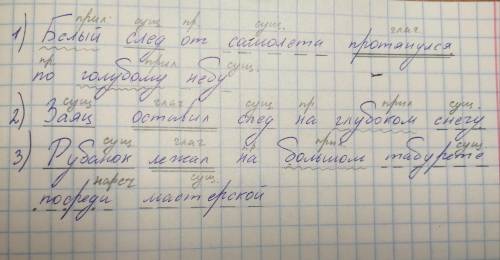 прил. сущ. пр. сущ. глаг.
1) Белый след от самолета протянулся
пр. прил. сущ.
по голубому небу
сущ. глаг. сущ. пр. прил. сущ.
2) Заяц оставил след на глубоком снегу
сущ. глаг. пр. прил. сущ.
3) Рубанок лежал на большом табурете
нареч сущ.
посреди мастерской